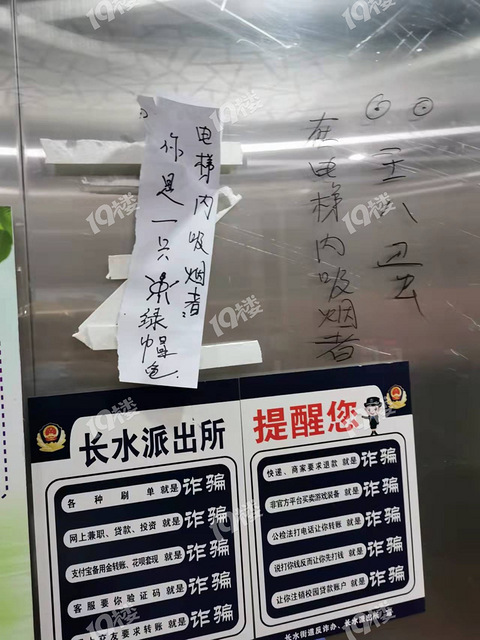 电梯内吸烟者:
你是一只绿帽
在电梯内吸烟者
长水派出所
提醒您
各种刷单就是诈骗
网上兼职、贷款、投资就是诈骗
支付宝备用金转账、花呗套现就是诈骗
客服要你验证码就是诈骗
交友要求转账就是诈骗
快递、商家要求退款就是诈骗
非官方平台买卖游戏装备就是诈骗
公检法打电话让你转账就是诈骗
说打你钱反而让你先打钱就是诈骗
让你注销校园贷款账户就是诈骗
长水街道反诈办、长水派出所
19楼